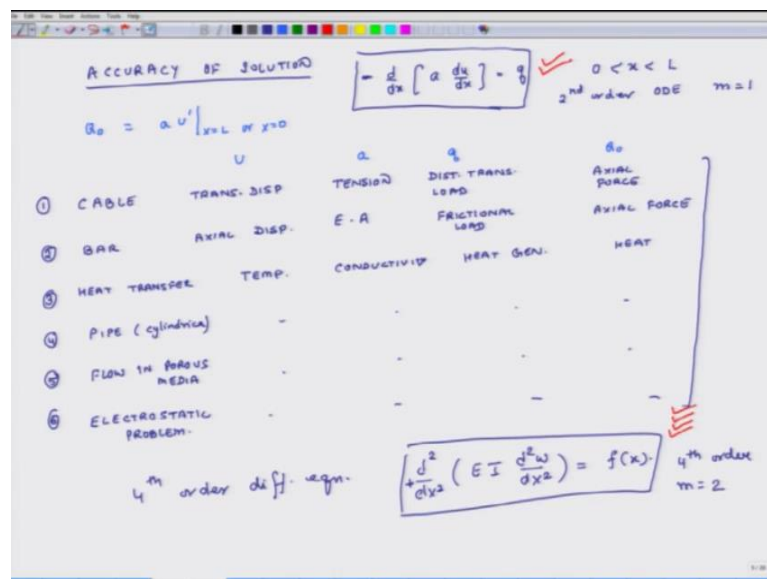 Edit View Insert Actions Tools Help
ACCURACY OF SOLUTION
- d/dx [ a du/dx ] = q
0 < x < L
2nd order ODE m=1
Q₀ = a U'|x=L or x=0
U a q Q₀
① CABLE TRANS. DISP TENSION DIST. TRANS. LOAD AXIAL FORCE
② BAR AXIAL DISP. E.A FRICTIONAL LOAD AXIAL FORCE
③ HEAT TRANSFER TEMP. CONDUCTIVITY HEAT GEN. HEAT
④ PIPE (cylindrical) - - - -
⑤ FLOW IN POROUS MEDIA - - - -
⑥ ELECTROSTATIC PROBLEM. - - - -
4th order diff. eqn.
+ d²/dx² ( E I d²w/dx² ) = f(x).
4th order
m = 2